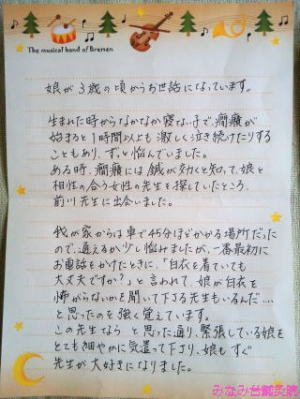 The musical band of Bremen
娘が3歳の頃からお世話になっています。
生まれた時からなかなか寝ない子で、癇癪が
始まると1時間以上も激しく泣き続けたりする
こともあり、ずっと悩んでいました。
ある時、癇癪には鍼が効くと知って、娘と
相性の合う女性の先生を探していたところ、
前川先生に出会いました。
我が家からは車で45分ほどかかる場所だった
ので、通えるか少し悩みましたが、一番最初に
お電話をかけたときに、「白衣を着ていても
大丈夫ですか?」と言われて、娘が白衣を
怖がらないかを聞いて下さる先生もいるんだ…
と思ったのを強く覚えています。
この先生なら と思った通り、緊張している娘を
とても細やかに気遣って下さり、娘もすぐ
先生が大好きになりました。
みなみ台鍼灸院